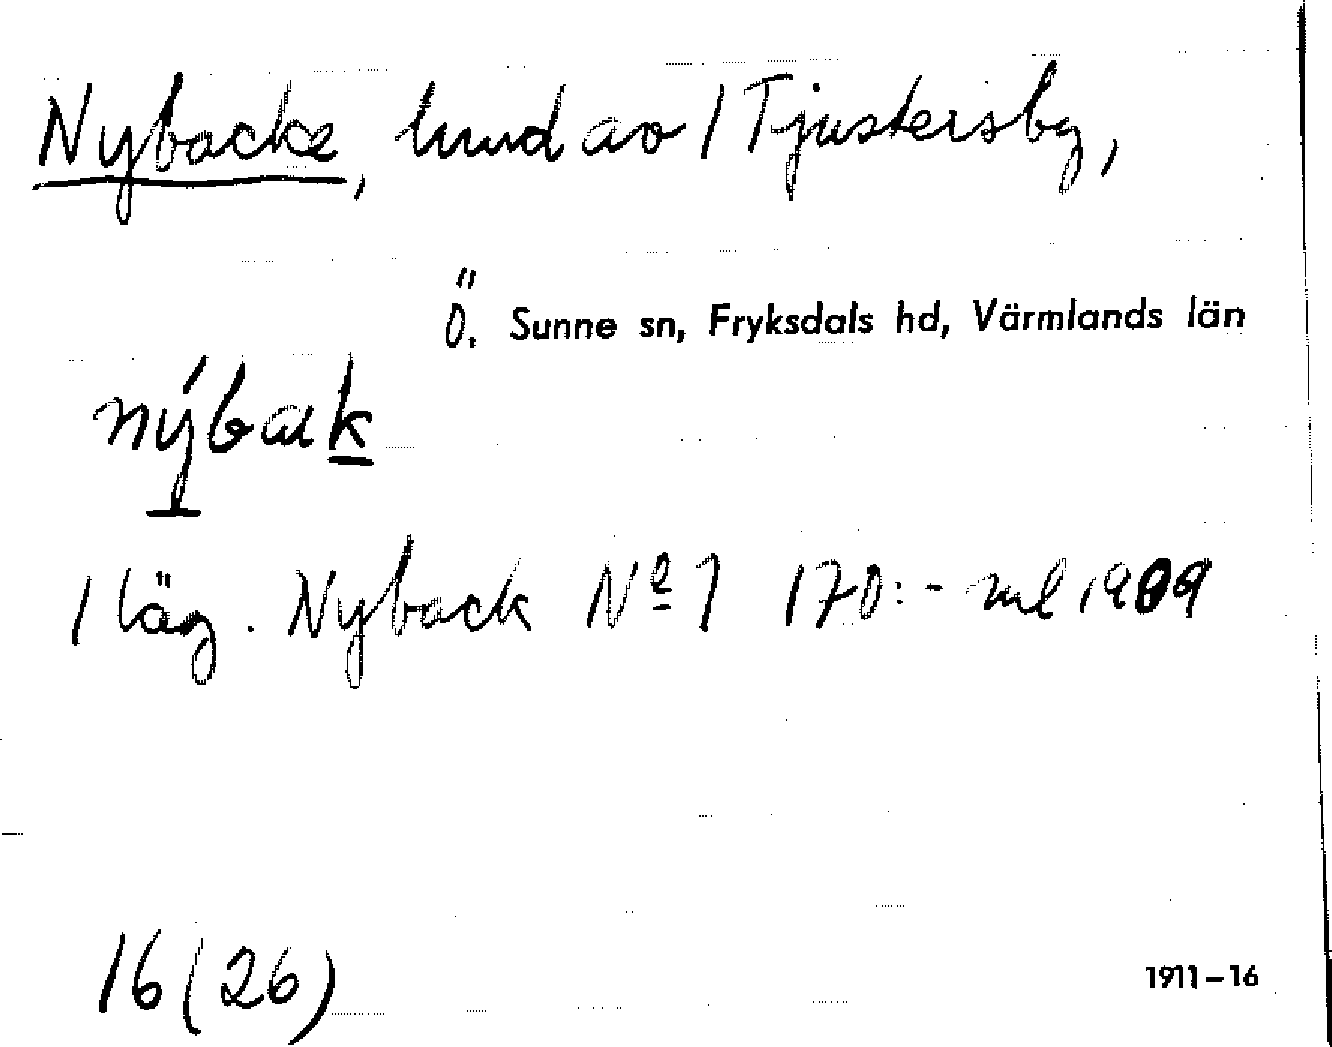 Nybacke, lund av 1 Tjustersby,
Ö. Sunne sn, Fryksdals hd, Värmlands län
nýbak
1 läg. Nyback Nº 1 170:- ml 1909
16 (26)
1911–16